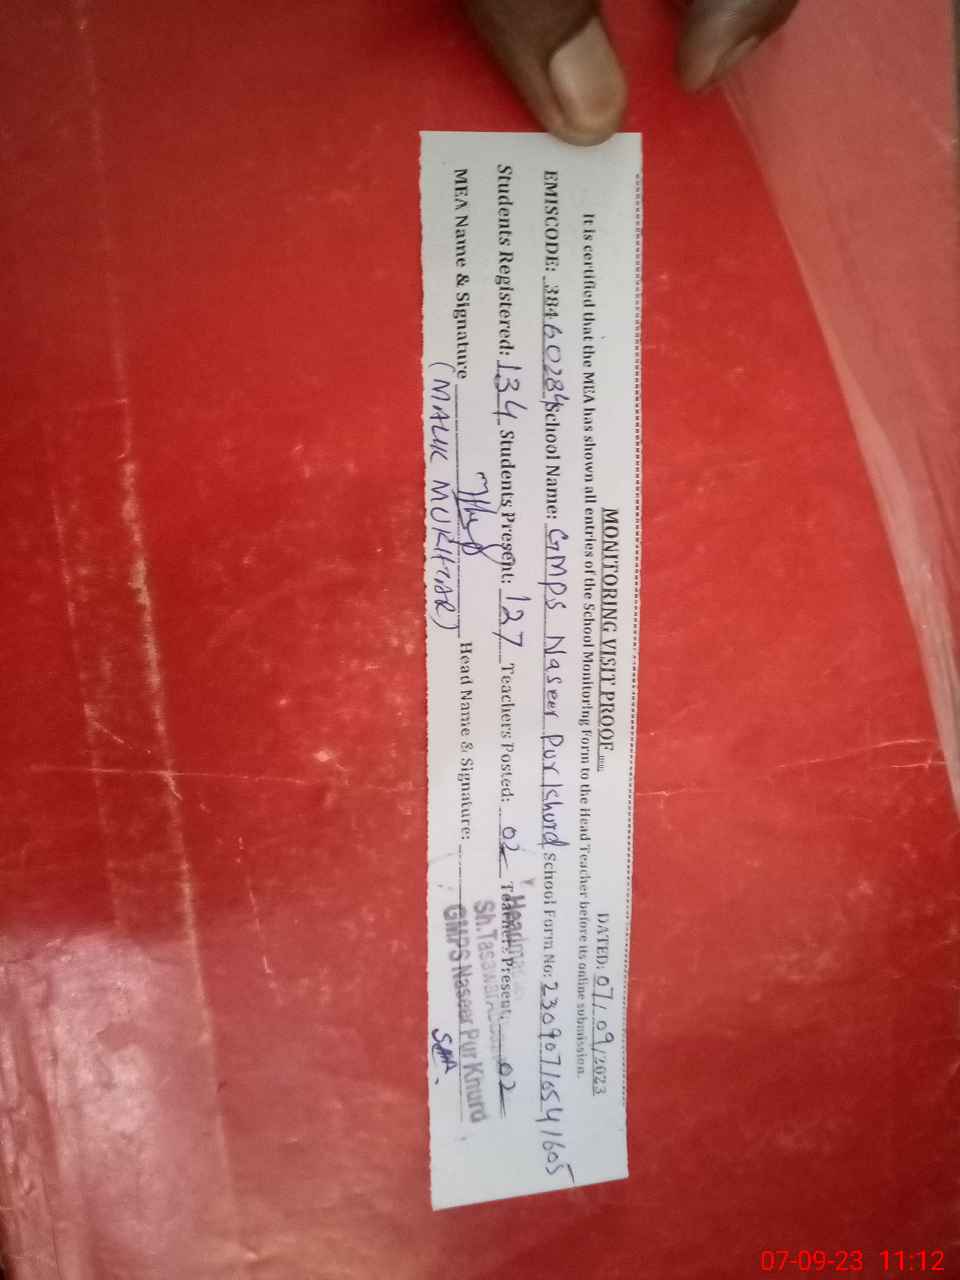 MONITORING VISIT PROOF
DATED: 07/09/2023
It is certified that the MEA has shown all entries of the School Monitoring Form to the Head Teacher before its online submission.
EMISCODE: 38460284 School Name: GMPS Naseer Pur Khurd School Form No: 23090710541605
Students Registered: 134 Students Present: 127 Teachers Posted: 02 Teachers Present: 02
MEA Name & Signature Head Name & Signature:
(MALIK MUKHTAR)
Sh.Tasawar
GMPS Naseer Pur Khurd
07-09-23 11:12